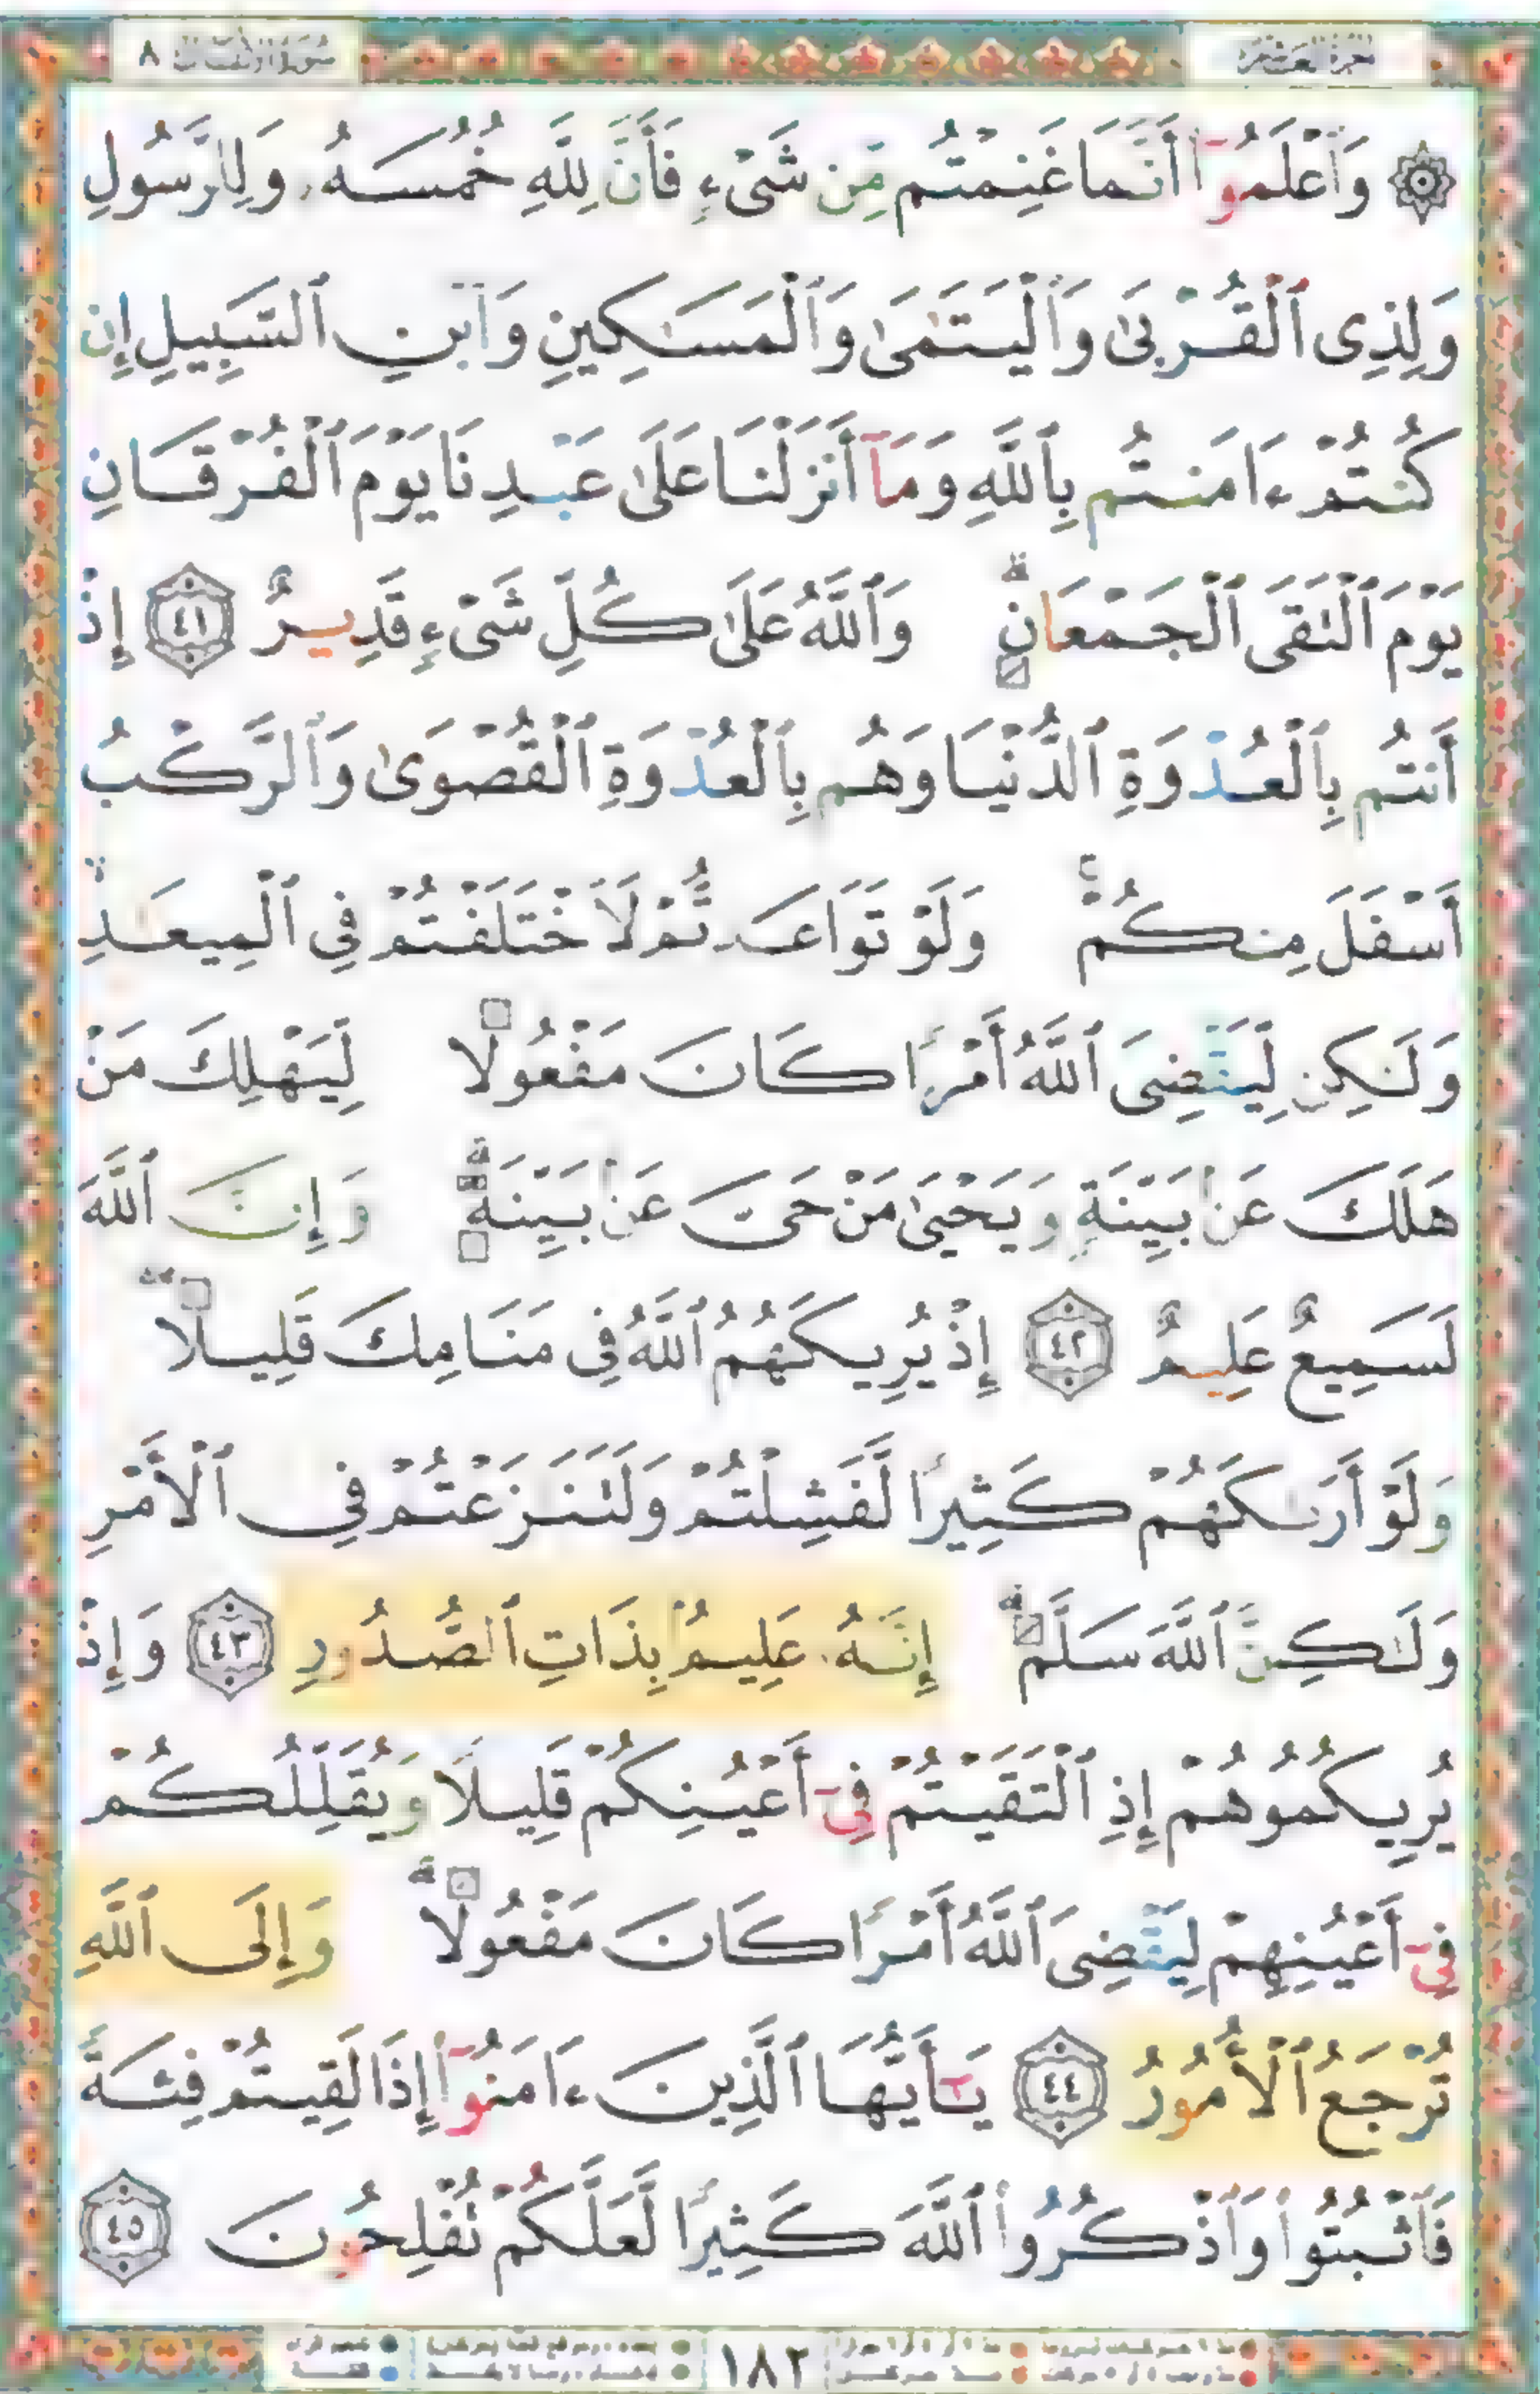 سُورَةُ الأنفال ٨
الجزء العاشر
۞ وَٱعْلَمُوٓا۟ أَنَّمَا غَنِمْتُم مِّن شَىْءٍ فَأَنَّ لِلَّهِ خُمُسَهُۥ وَلِلرَّسُولِ
وَلِذِى ٱلْقُرْبَىٰ وَٱلْيَتَـٰمَىٰ وَٱلْمَسَـٰكِينِ وَٱبْنِ ٱلسَّبِيلِ إِن
كُنتُمْ ءَامَنتُم بِٱللَّهِ وَمَآ أَنزَلْنَا عَلَىٰ عَبْدِنَا يَوْمَ ٱلْفُرْقَانِ
يَوْمَ ٱلْتَقَى ٱلْجَمْعَانِ ۗ وَٱللَّهُ عَلَىٰ كُلِّ شَىْءٍ قَدِيرٌ ٤١ إِذْ
أَنتُم بِٱلْعُدْوَةِ ٱلدُّنْيَا وَهُم بِٱلْعُدْوَةِ ٱلْقُصْوَىٰ وَٱلرَّكْبُ
أَسْفَلَ مِنكُمْ ۚ وَلَوْ تَوَاعَدتُّمْ لَٱخْتَلَفْتُمْ فِى ٱلْمِيعَـٰدِ ۙ
وَلَـٰكِن لِّيَقْضِىَ ٱللَّهُ أَمْرًا كَانَ مَفْعُولًا لِّيَهْلِكَ مَنْ
هَلَكَ عَنۢ بَيِّنَةٍ وَيَحْيَىٰ مَنْ حَىَّ عَنۢ بَيِّنَةٍ ۗ وَإِنَّ ٱللَّهَ
لَسَمِيعٌ عَلِيمٌ ٤٢ إِذْ يُرِيكَهُمُ ٱللَّهُ فِى مَنَامِكَ قَلِيلًا ۖ
وَلَوْ أَرَىٰكَهُمْ كَثِيرًا لَّفَشِلْتُمْ وَلَتَنَـٰزَعْتُمْ فِى ٱلْأَمْرِ
وَلَـٰكِنَّ ٱللَّهَ سَلَّمَ ۗ إِنَّهُۥ عَلِيمٌۢ بِذَاتِ ٱلصُّدُورِ ٤٣ وَإِذْ
يُرِيكُمُوهُمْ إِذِ ٱلْتَقَيْتُمْ فِىٓ أَعْيُنِكُمْ قَلِيلًا وَيُقَلِّلُكُمْ
فِىٓ أَعْيُنِهِمْ لِيَقْضِىَ ٱللَّهُ أَمْرًا كَانَ مَفْعُولًا ۗ وَإِلَى ٱللَّهِ
تُرْجَعُ ٱلْأُمُورُ ٤٤ يَـٰٓأَيُّهَا ٱلَّذِينَ ءَامَنُوٓا۟ إِذَا لَقِيتُمْ فِئَةً
فَٱثْبُتُوا۟ وَٱذْكُرُوا۟ ٱللَّهَ كَثِيرًا لَّعَلَّكُمْ تُفْلِحُونَ ٤٥
١٨٢